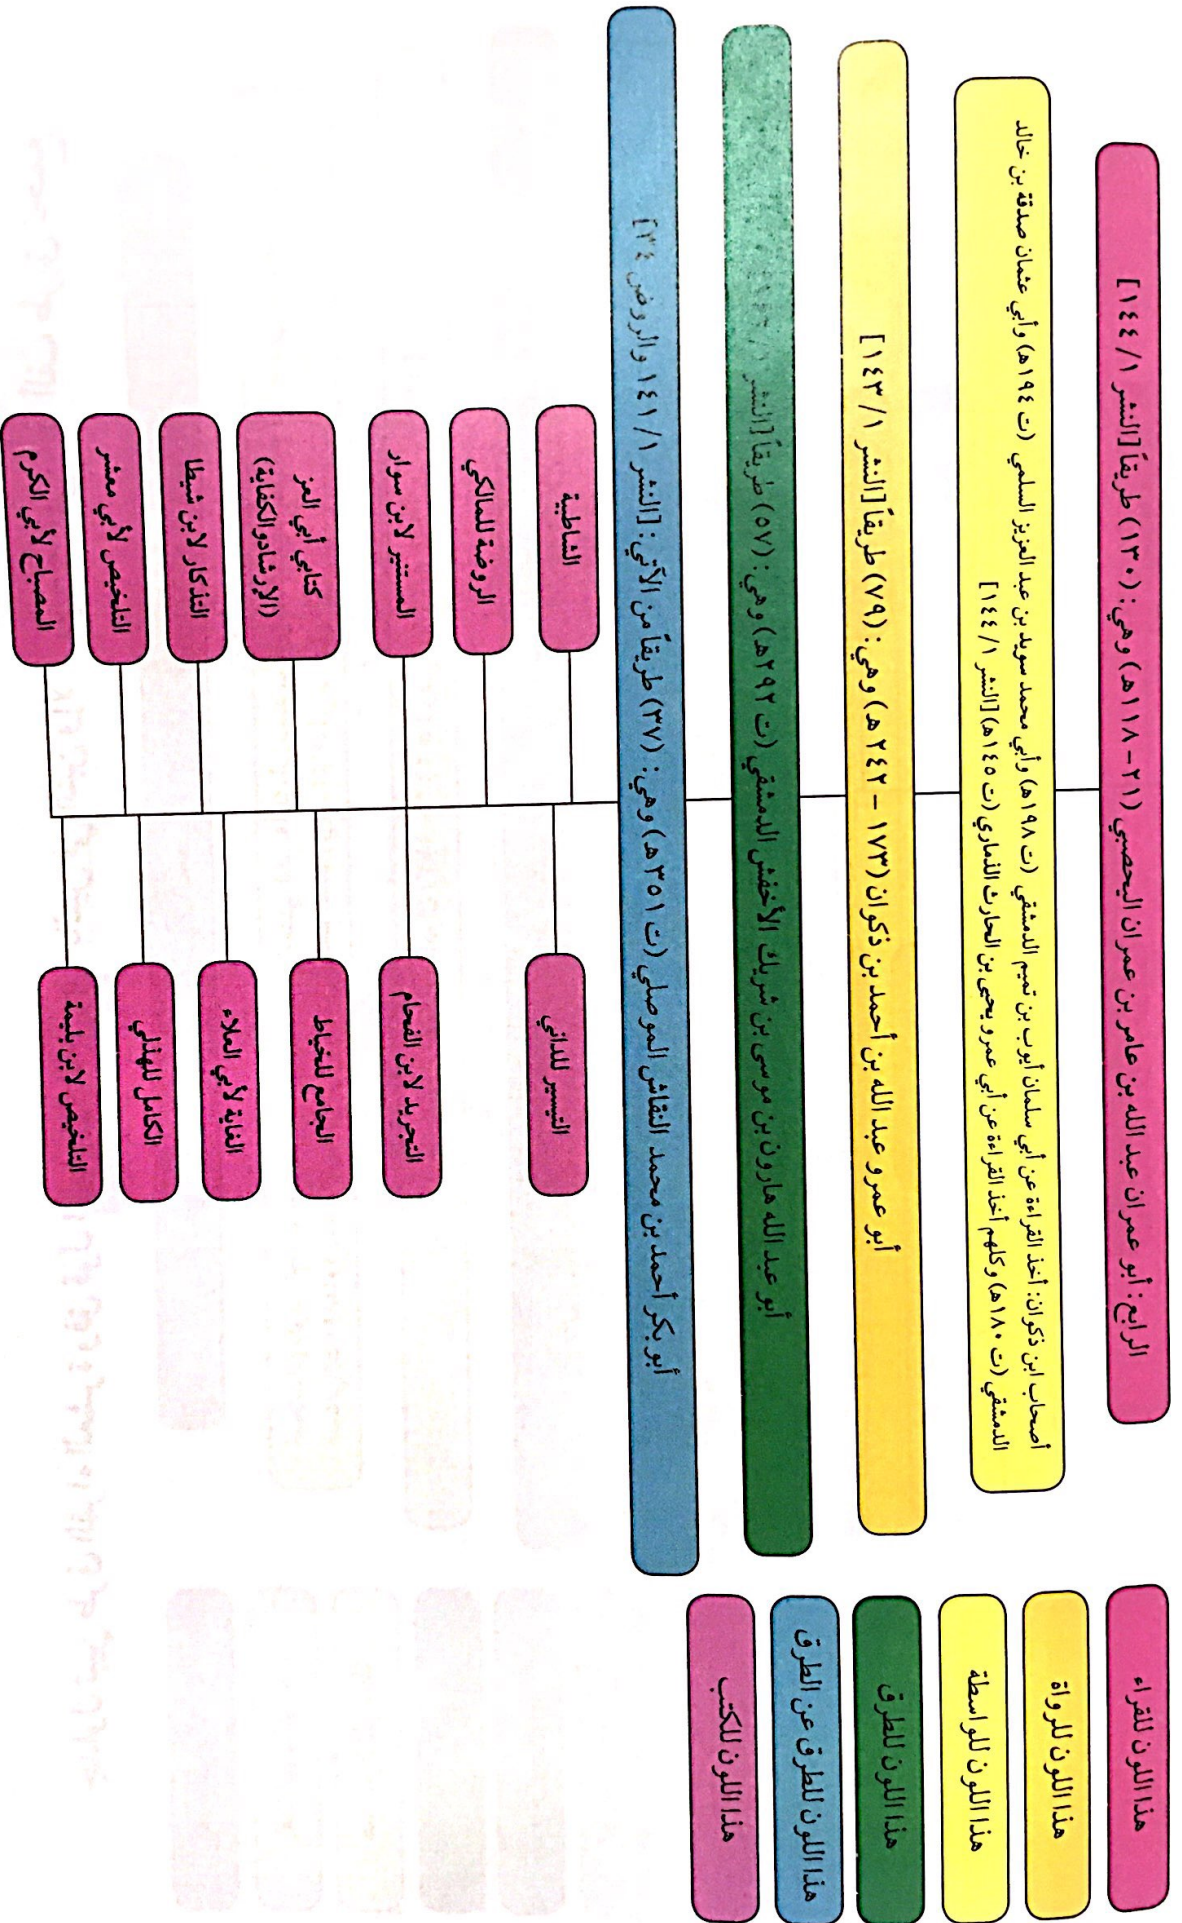 الرابع: أبو عمران عبد الله بن عامر بن عمران اليحصبي (٢١ - ١١٨هـ) وهي: (١٣٠) طريقاً [النشر ١/ ١٤٤]
أصحاب ابن ذكوان: أخذ القراءة عن أبي سلمان أيوب بن تميم الدمشقي (ت ١٩٨هـ) وأبي محمد سويد بن عبد العزيز السلمي (ت ١٩٤هـ) وأبي عثمان صدقة بن خالد
الدمشقي (ت ١٨٠هـ) وكلهم أخذ القراءة عن أبي عمرو يحيى بن الحارث الذماري (ت ١٤٥هـ) [النشر ١/ ١٤٤]
أبو عمرو عبد الله بن أحمد بن ذكوان (١٧٣ - ٢٤٢ هـ) وهي: (٧٩) طريقاً [النشر ١/ ١٤٣]
أبو عبد الله هارون بن موسى بن شريك الأخفش الدمشقي (ت ٢٩٢هـ) وهي: (٥٧) طريقاً [النشر
أبو بكر أحمد بن محمد النقاش الموصلي (ت ٣٥١هـ) وهي: (٣٧) طريقاً من الآتي: [النشر ١/ ١٤١ والروض ٣٤]
الشاطبية
التيسير للداني
الروضة للمالكي
المستنير لابن سوار
التجريد لابن الفحام
كتابي أبي العز
(الإرشاد والكفاية)
الجامع للخياط
التذكار لابن شيطا
الغاية لأبي العلاء
التلخيص لأبي معشر
الكامل للهذلي
المصباح لأبي الكرم
التلخيص لابن بليمة
هذا اللون للقراء
هذا اللون للرواة
هذا اللون للواسطة
هذا اللون للطرق
هذا اللون للطرق عن الطرق
هذا اللون للكتب